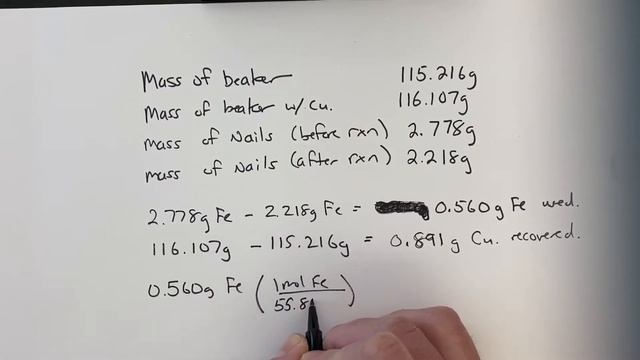 Mass of beaker 115.216g
Mass of beaker w/ Cu. 116.107g
mass of Nails (before rxn) 2.778g
mass of Nails (after rxn) 2.218g
2.778g Fe - 2.218g Fe = 0.560g Fe used.
116.107g - 115.216g = 0.891g Cu. recovered.
0.560g Fe (1mol Fe / 55.8)